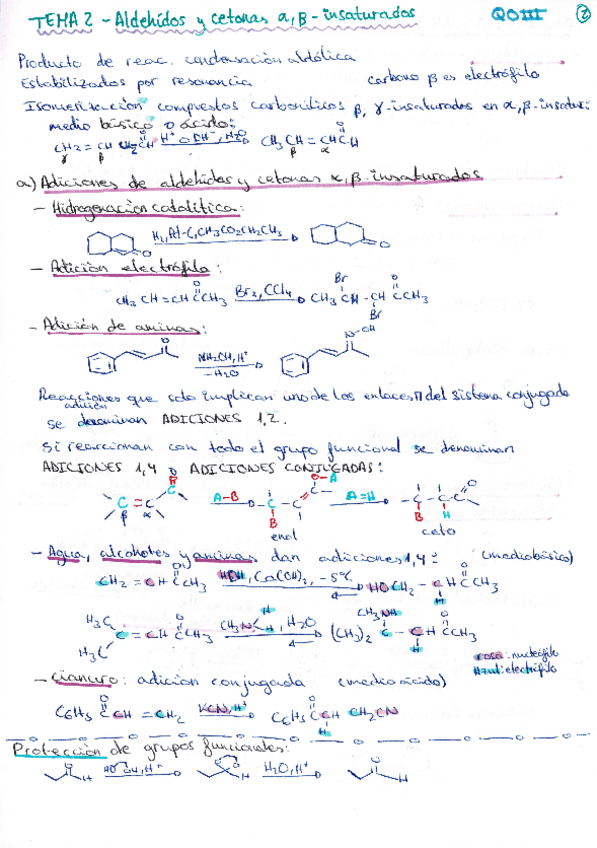 TEMA 2 - Aldehídos y cetonas α,β-insaturados QOIII 2
Producto de reac. condensación aldólica
Estabilizados por resonancia carbono β es electrófilo
Isomerización compuestos carbonílicos β,γ-insaturados en α,β-insatur:
medio básico o ácido:
CH2=CH CH2CH H+ o OH-, H2O CH3CH=CHCH
γ β β α
a) Adiciones de aldehídos y cetonas α,β-insaturados
- Hidrogenación catalítica:
H2, Pt-C, CH3CO2CH2CH3
- Adición electrófila:
CH3CH=CHCCH3 Br2, CCl4 CH3CH-CHCCH3
- Adición de aminas:
NH2OH, H+
-H2O
N-OH
Reacciones que solo implican uno de los enlaces π del sistema conjugado
adición
se denominan ADICIONES 1,2.
Si reaccionan con todo el grupo funcional se denominan
ADICIONES 1,4 o ADICIONES CONJUGADAS:
C=C-C A-B -C-C=C O-A A=H -C-C-C
β α B B H
enol ceto
- Agua, alcoholes y aminas dan adiciones 1,4: (medio básico)
CH2=CHCCH3 HOH, Ca(OH)2, -5ºC HOCH2-CHCCH3
H
H3C C=CHCCH3 CH3N H, H2O (CH3)2 C-CHCCH3
H3C CH3NH H
rosa: nucleófilo
Azul: electrófilo
- Cianuro: adición conjugada (medio ácido)
C6H5CCH=CH2 KCN, H+ C6H5CCH CH2CN
H
Protección de grupos funcionales:
H H2O, H+ H